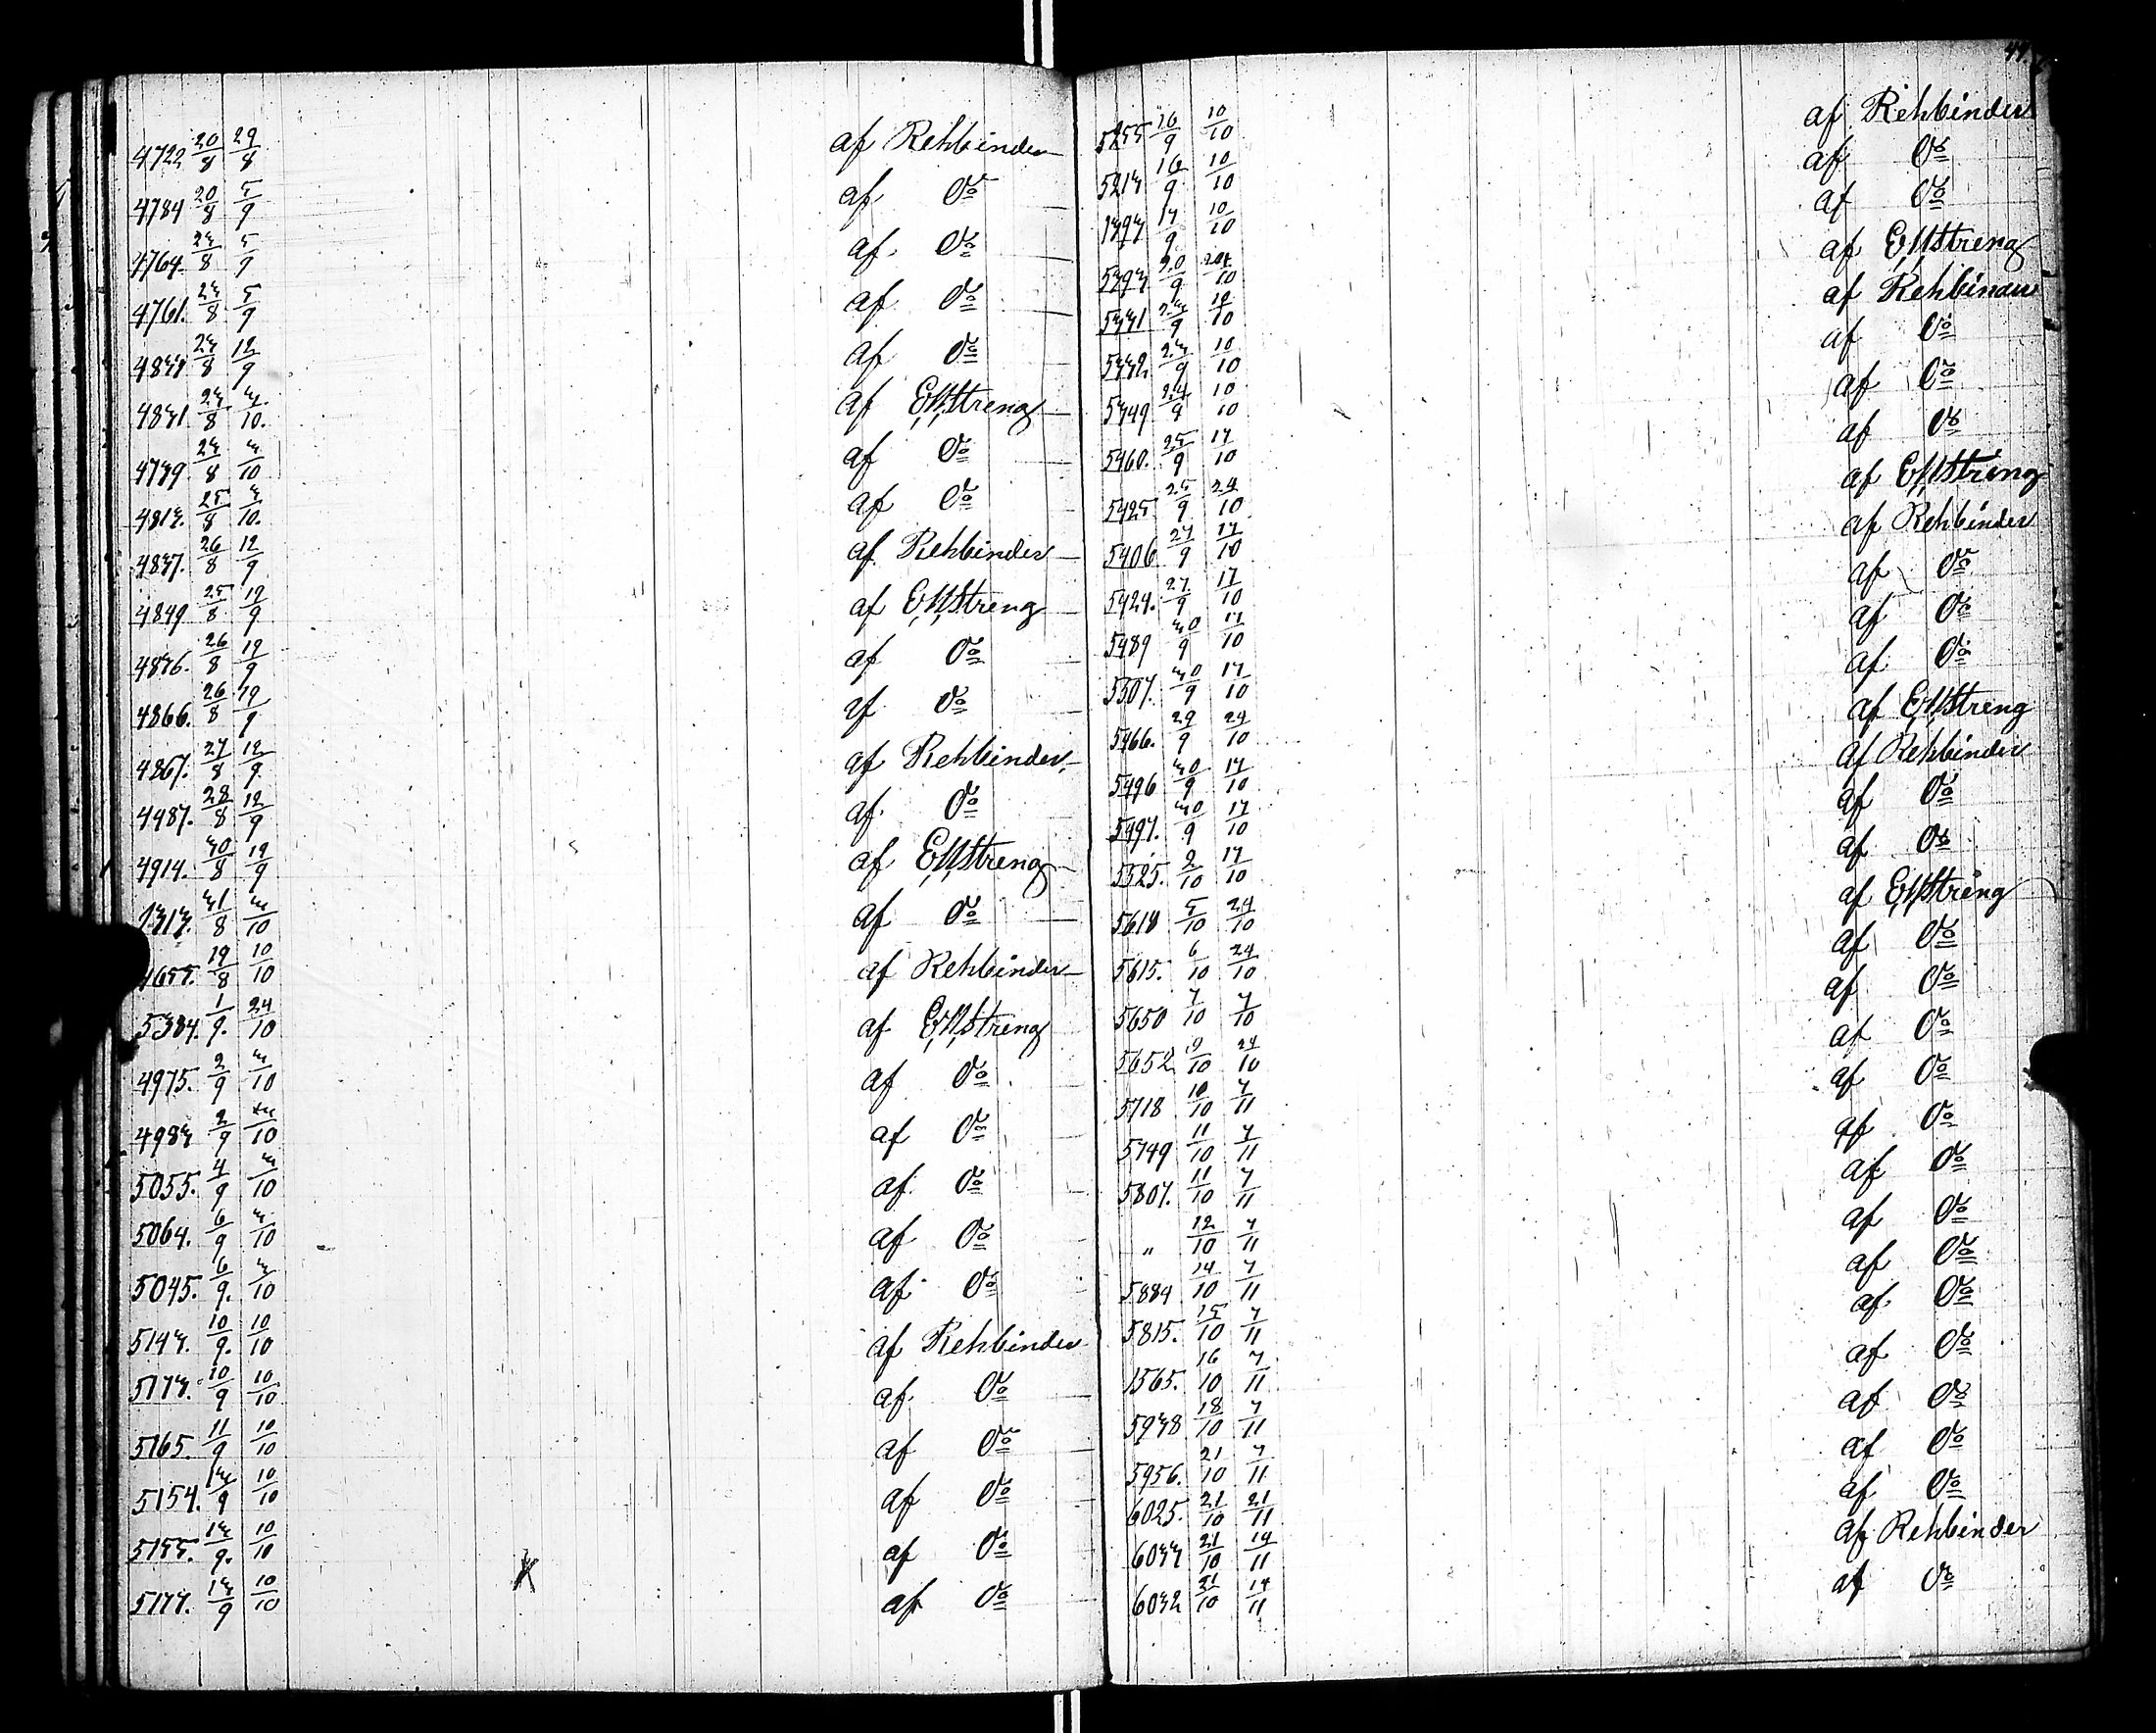 4722 20/8 29/8 af Rehbinder
4784 20/8 5/9 af Do
4764. 23/8 5/9 af. Do
4761. 23/8 5/9 af Do
23/8 12/9 af Do
4831 23/8 3/10. af Enstreng
4739 23/8 3/10 af Do
4813. 25/8 3/10. af Do
4837. 26/8 12/9 af Rehbinder
4849 25/8 19/9 af Enstreng
4876. 26/8 19/9 af Do
4866. 26/8 19/9 af Do
4867. 27/8 12/9 af Rehbinder
4487. 28/8 12/9 af Do
4914. 30/8 19/9 af Enstreng
31/8 3/10 af Do
4655. 19/8 10/10 af Rehbinder
5384. 1/9. 24/10 af Enstreng
4975. 2/9 3/10 af Do
4983 2/9 10 af Do
5055. 4/9 3/10 af Do
5064. 6/9 3/10 af Do
5045. 6/9. 3/10 af Do
5143. 10/9. 10/10 af Rehbinder
5173. 10/9 10/10 af Do
5165. 11/9 10/10 af Do
5154. 13/9 10/10 af Do
5155. 13/9. 10/10 af Do
5177. 13/9 10/10 af Do
47.
5255 16/9 10/10 af Rehbinder
5213 16/9 10/10 af Do
17/9 10/10 af Do
5393 20/9 24/10 af Enstreng
5331 23/9 10/10 af Rehbinder
5332 23/9 10/10 af Do
5349 24/9 10/10 af Do
5460. 25/9 17/10 af Do
5425 25/9 24/10 af Enstreng
5406 27/9 17/10 af Rehbinder
5424. 27/9 17/10 af Do
5489 30/9 17/10 af Do
5507. 30/9 17/10 af Do
5466. 29/9 24/10 af Enstreng
5496 30/9 17/10 af Rehbinder
5497. 30/9 17/10 af Do
5525. 2/10 17/10 af Do
5618 5/10 24/10 af Enstreng
5615. 6/10 24/10 af Do
5650 7/10 7/10 af Do
5652 9/10 24/10 af Do
5718 10/10 7/11 af Do
5749 11/10 7/11 af Do
5807. 11/10 7/11 af Do
" 12/10 7/11 af Do
5884 14/10 7/11 af Do
5815. 15/10 7/11 af Do
1565. 16/10 7/11 af Do
5938 18/10 7/11 af Do
5956. 21/10 7/11 af Do
6025. 21/10 21/11 af Do
6033 21/10 14/11 af Rehbinder
6032 21/10 14/11 af Do